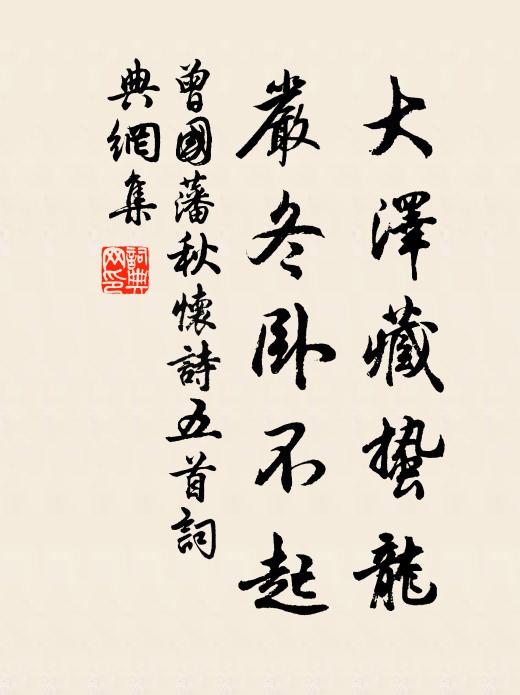 大澤藏蟄龍
嚴冬卧不起
曾國藩秋懷詩五首詞
典網集
詞典
网印